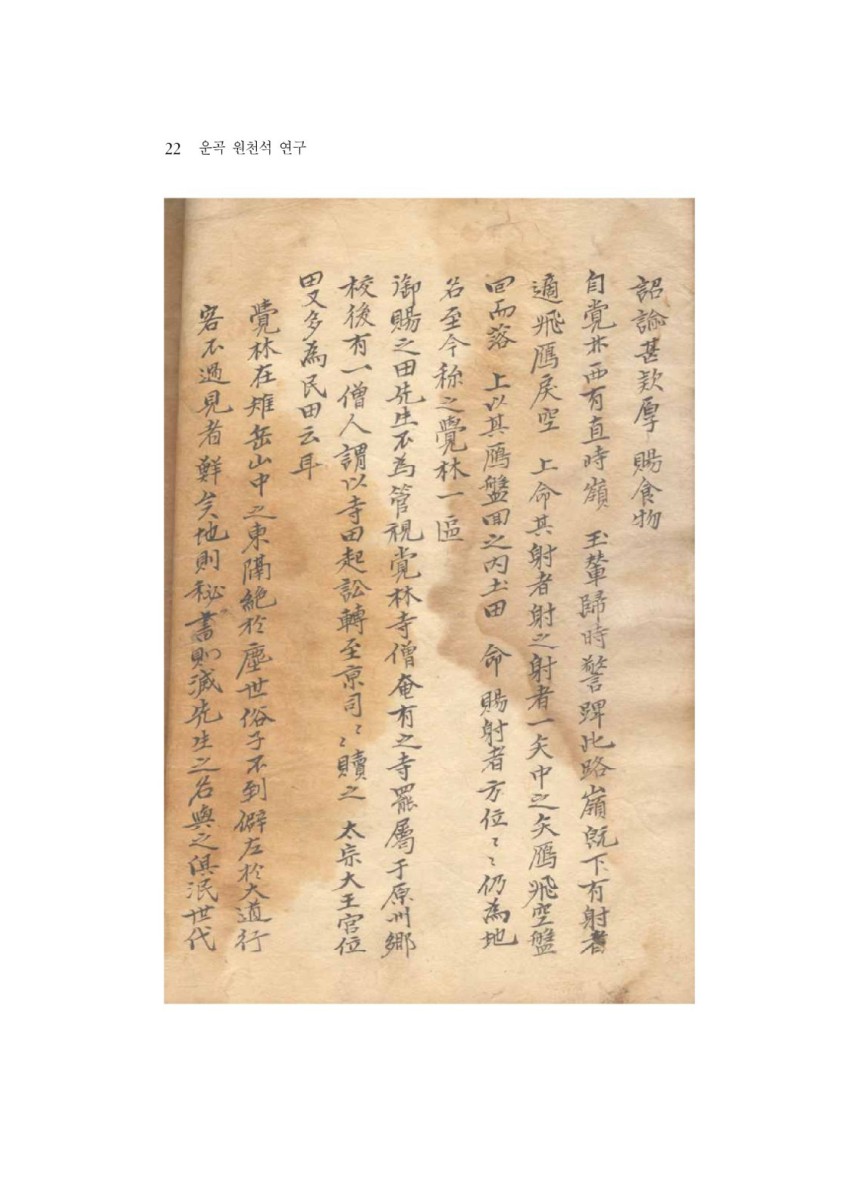 22 운곡 원천석 연구
詔諭甚欵厚 賜食物
自覚林西有直時嶺 玉輦歸時警蹕此路嶺旣下有射者
適飛鴈戾空 上命其射者射之射者一矢中之矢鴈飛空盤
回而落 上以其鴈盤回之内土田 命賜射者方位〻仍為地
名至今称之覺林一區
御賜之田先生不為管視覚林寺僧奄有之寺罷属于原州鄉
校後有一僧人謂以寺田起訟轉至京司〻贖之 太宗大王宮位
田又多為民田云耳
覺林在雉岳山中之東隔絶於塵世俗子不到僻左於大道行
客不過見者鮮矣地則秘書則滅先生之名與之俱泯世代